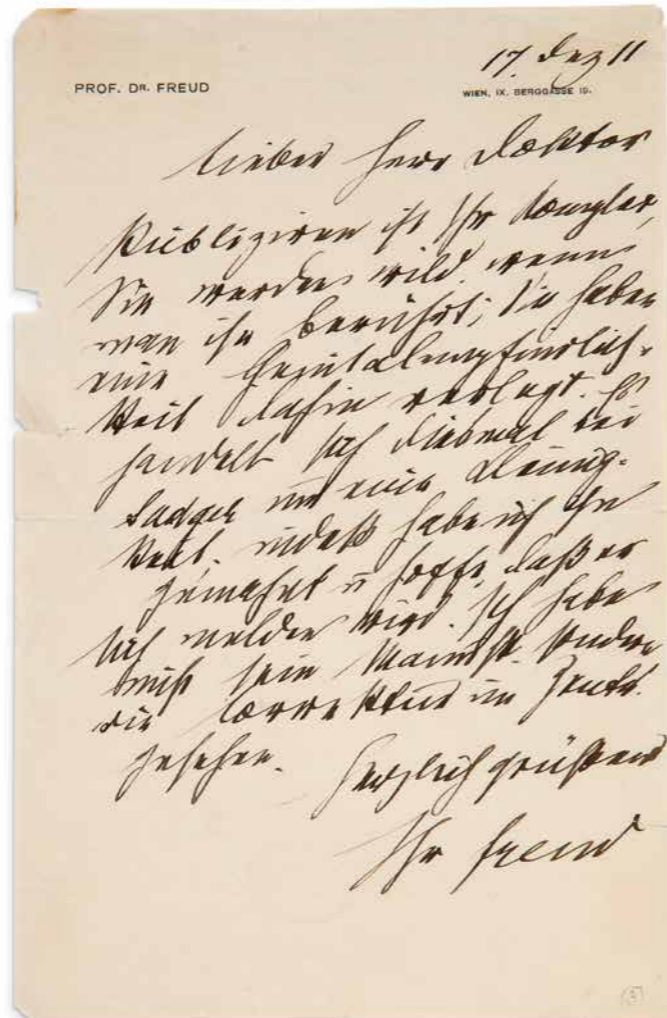 17. Dez 11
PROF. DR. FREUD
WIEN, IX. BERGGASSE 19.
Lieber Herr Doktor
Publiziren ist Ihr Komplex,
Sie werden wild, wenn
man ihn berührt; Sie haben
eine Genitalempfindlich-
keit dahin verlegt. Es
handelt sich diesmal bei
Sadger um eine Kleinig-
keit, indeß habe ich ihn
gemahnt u hoffe, daß er
sich melden wird. Ich habe
nicht sein Manuskr. sondern
die Correktur im
gesehen.
Herzlich grüßend
Ihr Freud